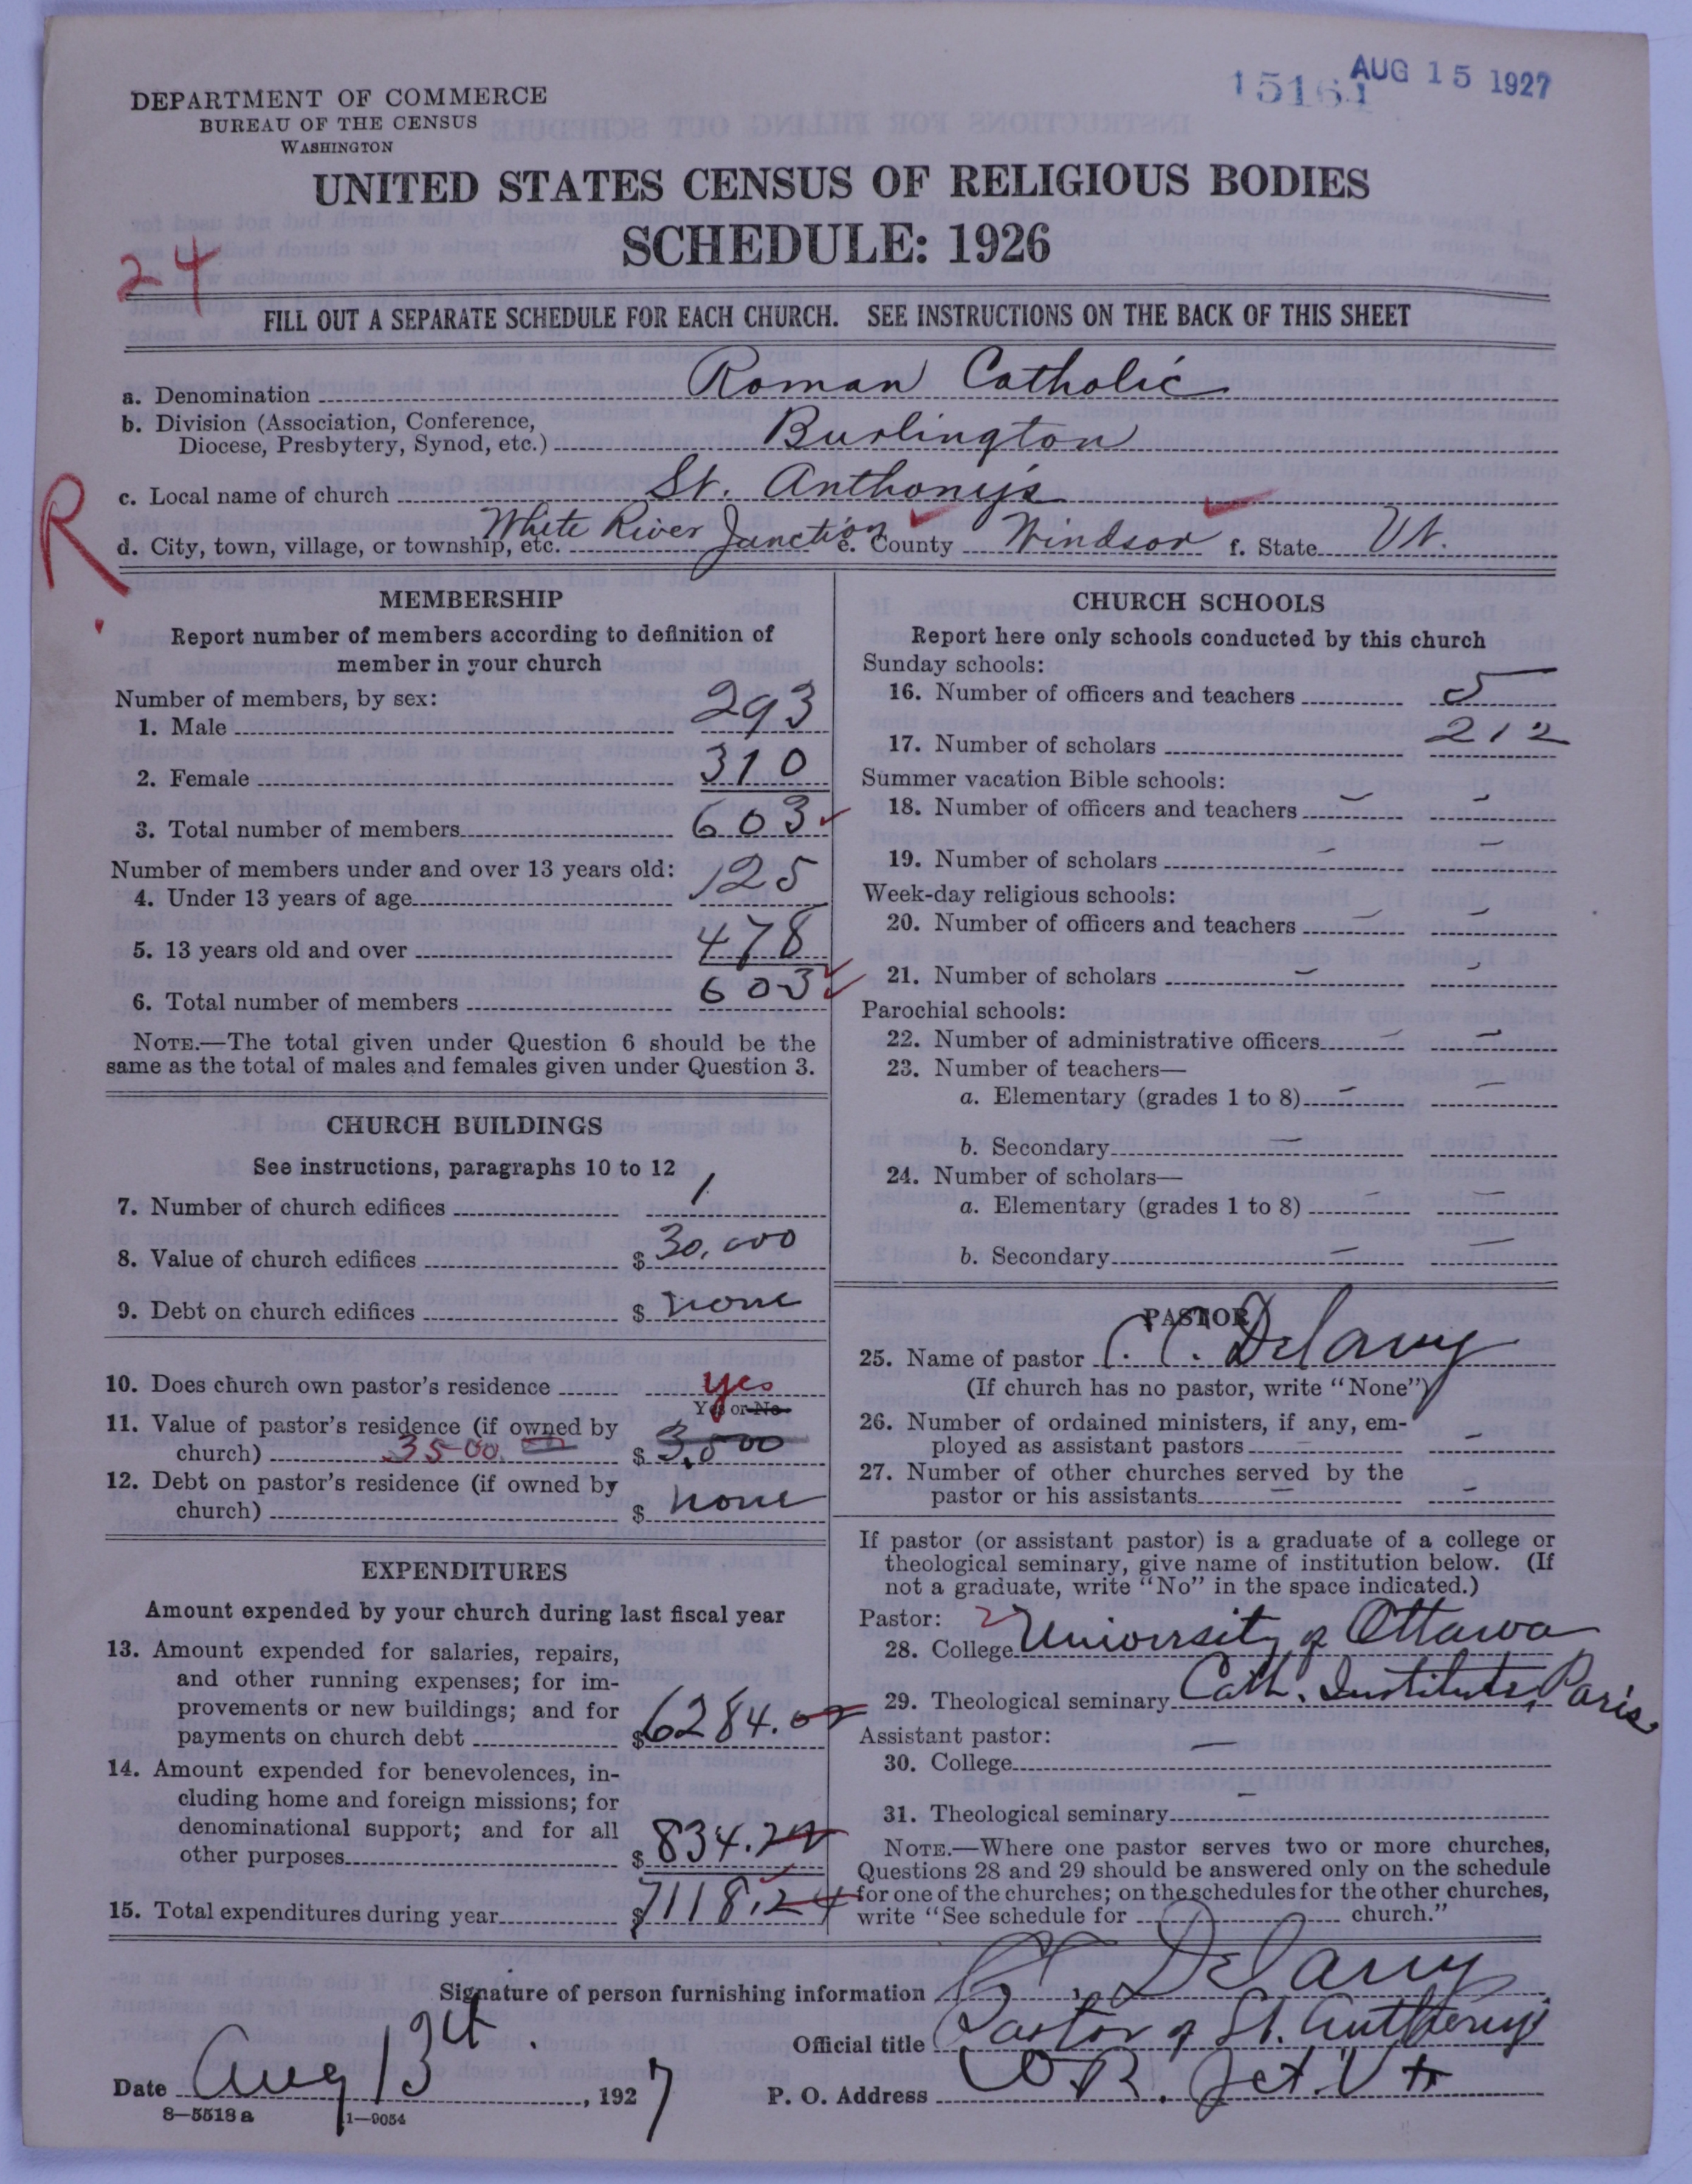 15161 AUG 15 1927
DEPARTMENT OF COMMERCE
BUREAU OF THE CENSUS
WASHINGTON
UNITED STATES CENSUS OF RELIGIOUS BODIES
SCHEDULE: 1926
24
FILL OUT A SEPARATE SCHEDULE FOR EACH CHURCH. SEE INSTRUCTIONS ON THE BACK OF THIS SHEET
a. Denomination Roman Catholic
b. Division (Association, Conference,
Diocese, Presbytery, Synod, etc.) Burlington
R.
c. Local name of church St. Anthony's
d. City, town, village, or township, etc. White River Junction e. County Windsor f. State Vt.
MEMBERSHIP
Report number of members according to definition of
member in your church
Number of members, by sex:
1. Male 293
2. Female 310
3. Total number of members 603
Number of members under and over 13 years old:
4. Under 13 years of age 125
5. 13 years old and over 478
6. Total number of members 603
NOTE.—The total given under Question 6 should be the
same as the total of males and females given under Question 3.
CHURCH BUILDINGS
See instructions, paragraphs 10 to 12
7. Number of church edifices 1
8. Value of church edifices $ 30,000
9. Debt on church edifices $ none
10. Does church own pastor's residence yes
Yes or No
11. Value of pastor's residence (if owned by
church) 3500.00 $ 3,500
12. Debt on pastor's residence (if owned by
church) $ none
EXPENDITURES
Amount expended by your church during last fiscal year
13. Amount expended for salaries, repairs,
and other running expenses; for im-
provements or new buildings; and for
payments on church debt $ 6284.02
14. Amount expended for benevolences, in-
cluding home and foreign missions; for
denominational support; and for all
other purposes $ 834.22
15. Total expenditures during year $ 7118.24
CHURCH SCHOOLS
Report here only schools conducted by this church
Sunday schools:
16. Number of officers and teachers 5
17. Number of scholars 212
Summer vacation Bible schools:
18. Number of officers and teachers — —
19. Number of scholars — —
Week-day religious schools:
20. Number of officers and teachers — —
21. Number of scholars — —
Parochial schools:
22. Number of administrative officers — —
23. Number of teachers—
a. Elementary (grades 1 to 8) — —
b. Secondary —
24. Number of scholars—
a. Elementary (grades 1 to 8) — —
b. Secondary — —
PASTOR
25. Name of pastor C. C. Delany
(If church has no pastor, write "None")
26. Number of ordained ministers, if any, em-
ployed as assistant pastors — —
27. Number of other churches served by the
pastor or his assistants — —
If pastor (or assistant pastor) is a graduate of a college or
theological seminary, give name of institution below. (If
not a graduate, write "No" in the space indicated.)
Pastor: 2
28. College University of Ottawa
29. Theological seminary Cath. Institute, Paris
Assistant pastor:
30. College —
31. Theological seminary —
NOTE.—Where one pastor serves two or more churches,
Questions 28 and 29 should be answered only on the schedule
for one of the churches; on the schedules for the other churches,
write "See schedule for church."
Signature of person furnishing information C. C. Delany
Official title Pastor of St. Anthony's
Date Aug 13th. , 1927 P. O. Address W. R. Jct. Vt
8—5518 a 11—9054